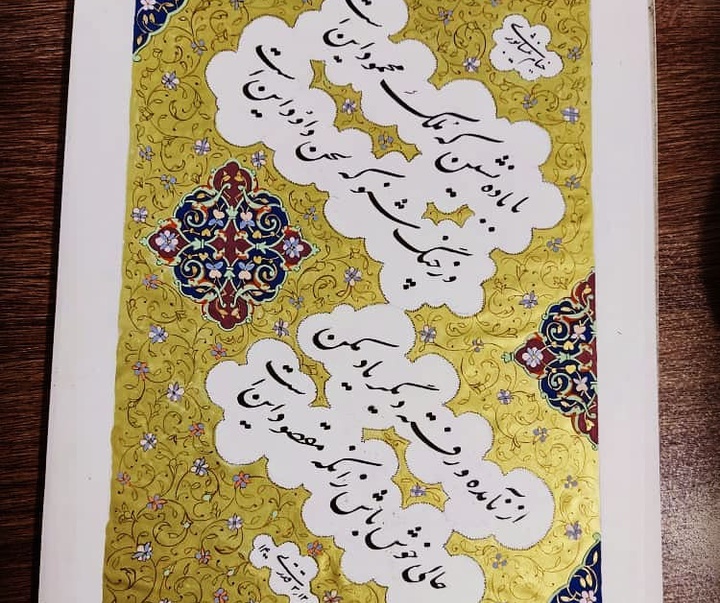 خیام نیشابوری
با باده نشین که ملک محمود این است
وز چنگ شنو که لحن داود این است
از نامده و رفته دگر یاد مکن
حالی خوش باش زانکه مقصود این است